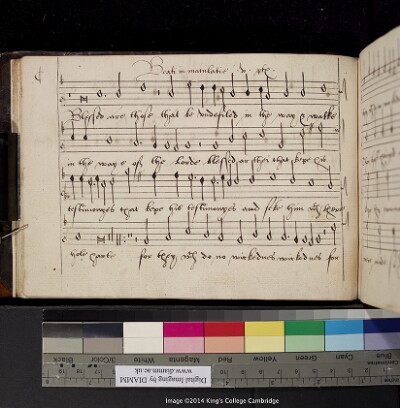 Beati in maculati
Blessed are those that be undefiled in the way & walke
in the waye of the lorde blessed ar thei that kepe his
testimonyes that kepe his testimonyes and seke him wth theyr
hole harte for they wch do no wickednes wickednes for
Black 3/Color White Magenta Red Yellow Green Cyan Blue
Digital Imaging by DIAMM
www.diamm.ac.uk
Image ©2014 King's College Cambridge